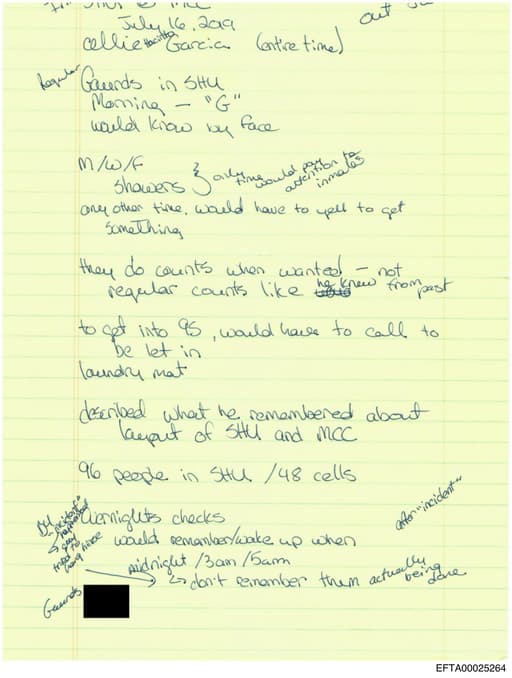 out
July 16, 2019
cellie Garcia (entire time)
Regular Gaurds in SHU
Morning – "G"
would know by face
M/W/F
showers } only time would pay attention to inmates
any other time, would have to yell to get
something
they do counts when wanted – not
regular counts like he knew from past
to get into 95, would have to call to
be let in
laundry mat
described what he remembered about
layout of SHU and MCC
96 people in SHU / 48 cells
Overnights checks
after "incident"
would remember/wake up when
midnight / 3am / 5am
↳ don't remember them actually being done
"incident"
tried to
hang
Gaurds
EFTA00025264